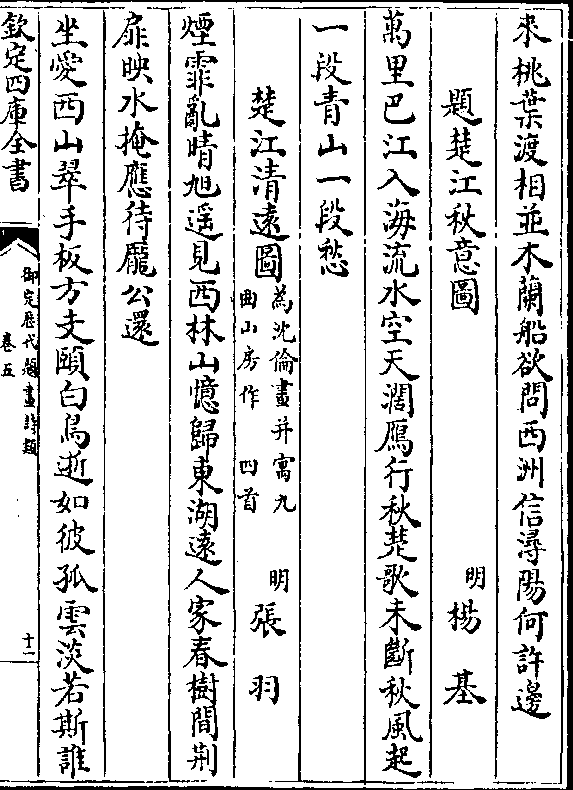 來桃葉渡相並木蘭船欲問西洲信潯陽何許邊
題楚江秋意圖
明楊基
萬里巴江入海流水空天濶鴈行秋楚歌未斷秋風起
一段青山一段愁
楚江清遠圖
為沈倫畫并寓九
曲山房作 四首
明張羽
煙霏亂晴旭遥見西林山憶歸東湖遠人家春樹間荆
扉映水掩應待龐公還
坐愛西山翠手板方支頤白鳥逝如彼孤雲淡若斯誰
欽定四庫全書
御定歴代題畫詩類
卷五
十一